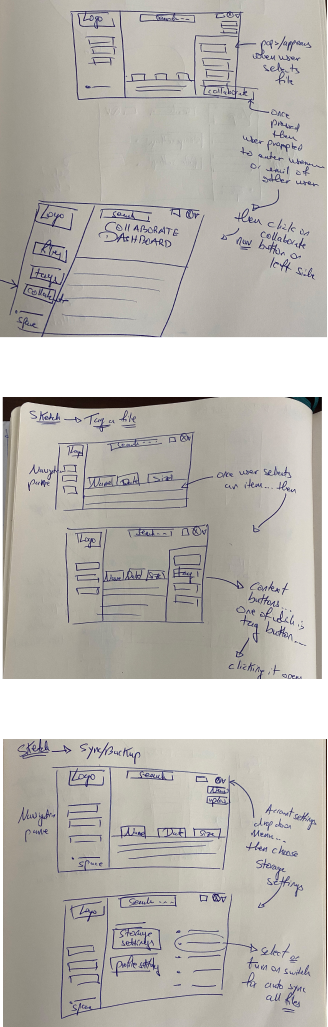 Logo
search...
pops/appears
when user
selects
file
collaborate
once
pressed
then
user prompted
to enter
or email of
other user
then click on
collaborate
now button on
left side
Logo
search
COLLABORATE
DASHBOARD
files
tags
collaborate
space
Sketch → Tag a file
Logo
search...
Navigation
pane
Name Date Size
once user selects
an item... then
Logo
search...
Name Date Size
tag
context
buttons...
one of which is
tag button...
clicking it opens
Sketch → Sync/Backup
Logo
search
Navigation
pane
Name Date Size
space
Account settings
drop down
menu...
then choose
storage
settings
Logo
Search...
storage
settings
profile setting
space
select or
turn on switch
for auto sync
all files